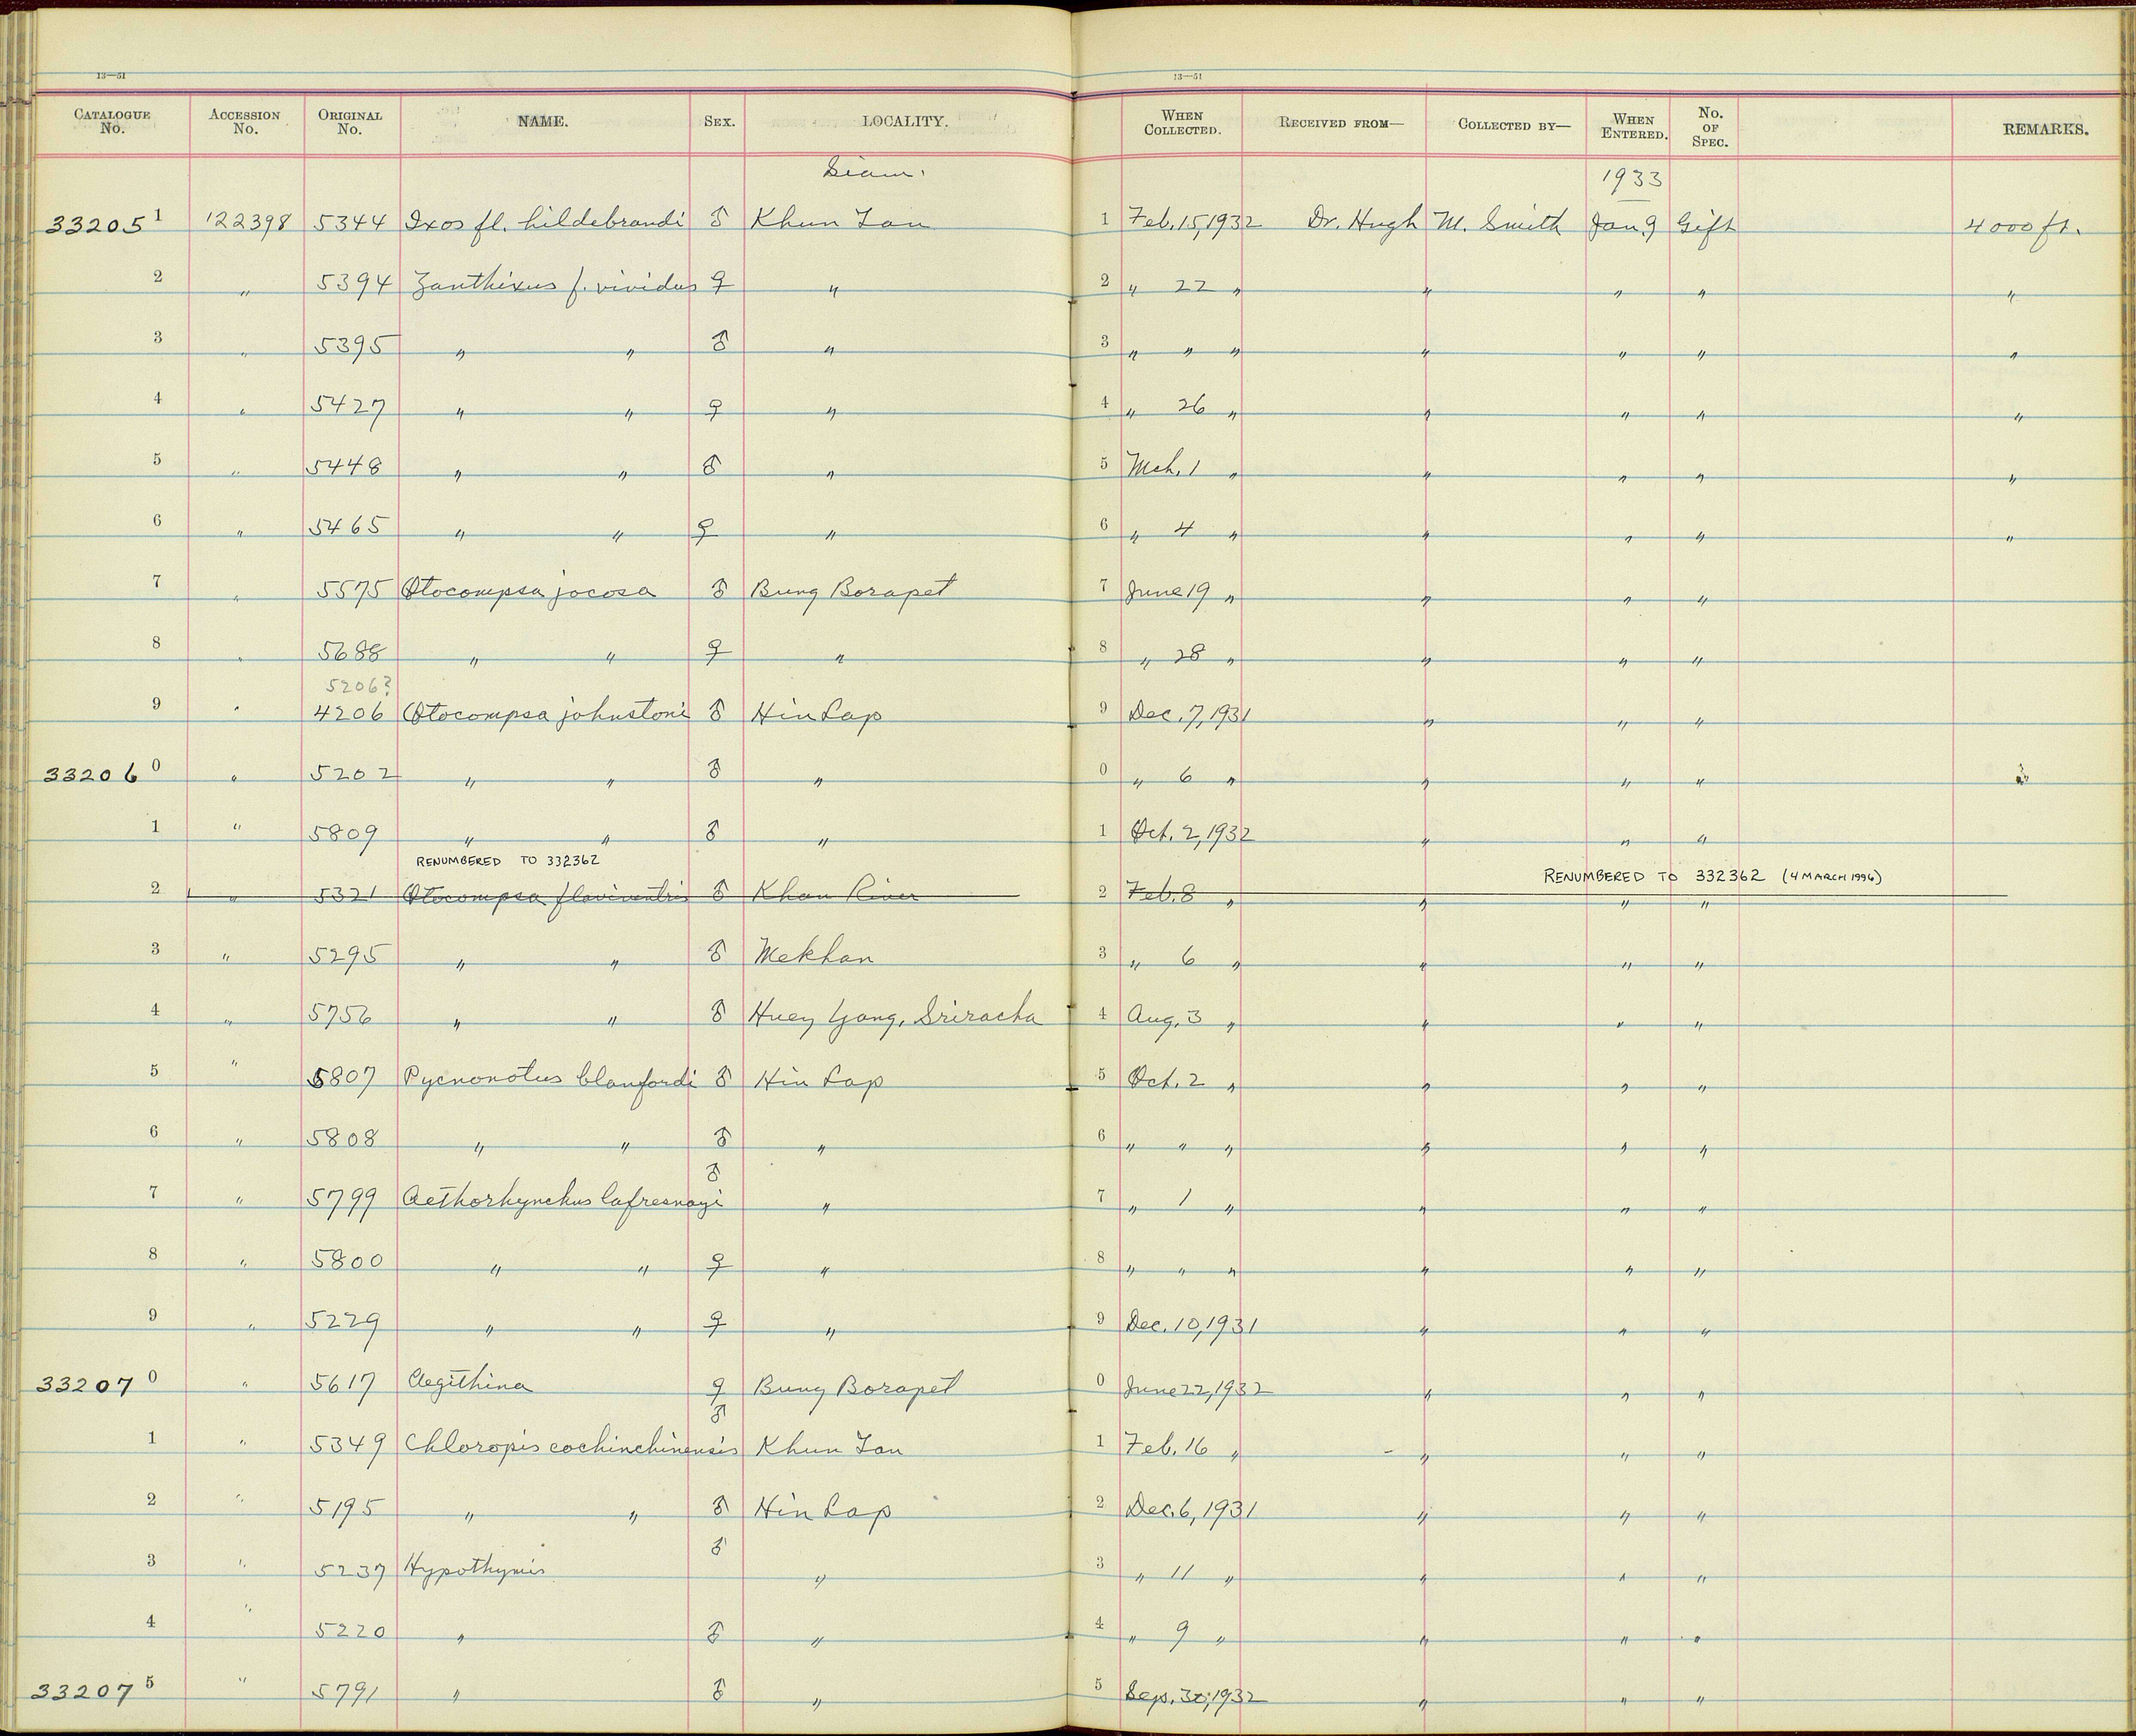 13—51 13—51
CATALOGUE No. ACCESSION No. ORIGINAL No. NAME. SEX. LOCALITY. WHEN COLLECTED. RECEIVED FROM— COLLECTED BY— WHEN ENTERED. No. OF SPEC. REMARKS.
Siam. 1933
33205 1 122398 5344 Ixos fl. hildebrandi ♂ Khun Tan 1 Feb. 15, 1932 Dr. Hugh M. Smith Jan 9 Gift 4000 ft.
2 " 5394 Xanthixus f. vividus ♀ " 2 " 22 " " " " "
3 " 5395 " " ♂ " 3 " " " " " " "
4 " 5427 " " ♀ " 4 " 26 " " " " "
5 " 5448 " " ♂ " 5 Mch. 1 " " " " "
6 " 5465 " " ♀ " 6 " 4 " " " " "
7 " 5575 Otocompsa jocosa ♂ Bung Borapet 7 June 19 " " " "
8 " 5688 " " ♀ " 8 " 28 " " " "
5206?
9 " 4206 Otocompsa johnstoni ♂ Hin Lap 9 Dec. 7, 1931 " " "
33206 0 " 5202 " " ♂ " 0 " 6 " " " "
1 " 5809 " " ♂ " 1 Oct. 2, 1932 " " "
RENUMBERED TO 332362 RENUMBERED TO 332362 (4 MARCH 1996)
2 " 5321 Otocompsa flaviventris ♂ Khan River 2 Feb. 8 " " " "
3 " 5295 " " ♂ Mekhan 3 " 6 " " " "
4 " 5756 " " ♂ Huey Yang, Sriracha 4 Aug. 3 " " " "
5 " 5807 Pycnonotus blanfordi ♂ Hin Lap 5 Oct. 2 " " " "
6 " 5808 " " ♂ " 6 " " " " " "
7 " 5799 Aethorhynchus lafresnayi ♂ " 7 " 1 " " " "
8 " 5800 " " ♀ " 8 " " " " " "
9 " 5229 " " ♀ " 9 Dec. 10, 1931 " " "
33207 0 " 5617 Aegithina ♀ Bung Borapet 0 June 22, 1932 " " "
1 " 5349 Chloropis cochinchinensis ♂ Khun Tan 1 Feb. 16 " " " "
2 " 5195 " " ♂ Hin Lap 2 Dec. 6, 1931 " " "
3 " 5237 Hypothymis ♂ " 3 " 11 " " " "
4 " 5220 " ♂ " 4 " 9 " " " "
33207 5 " 5791 " ♂ " 5 Sep. 30, 1932 " " "